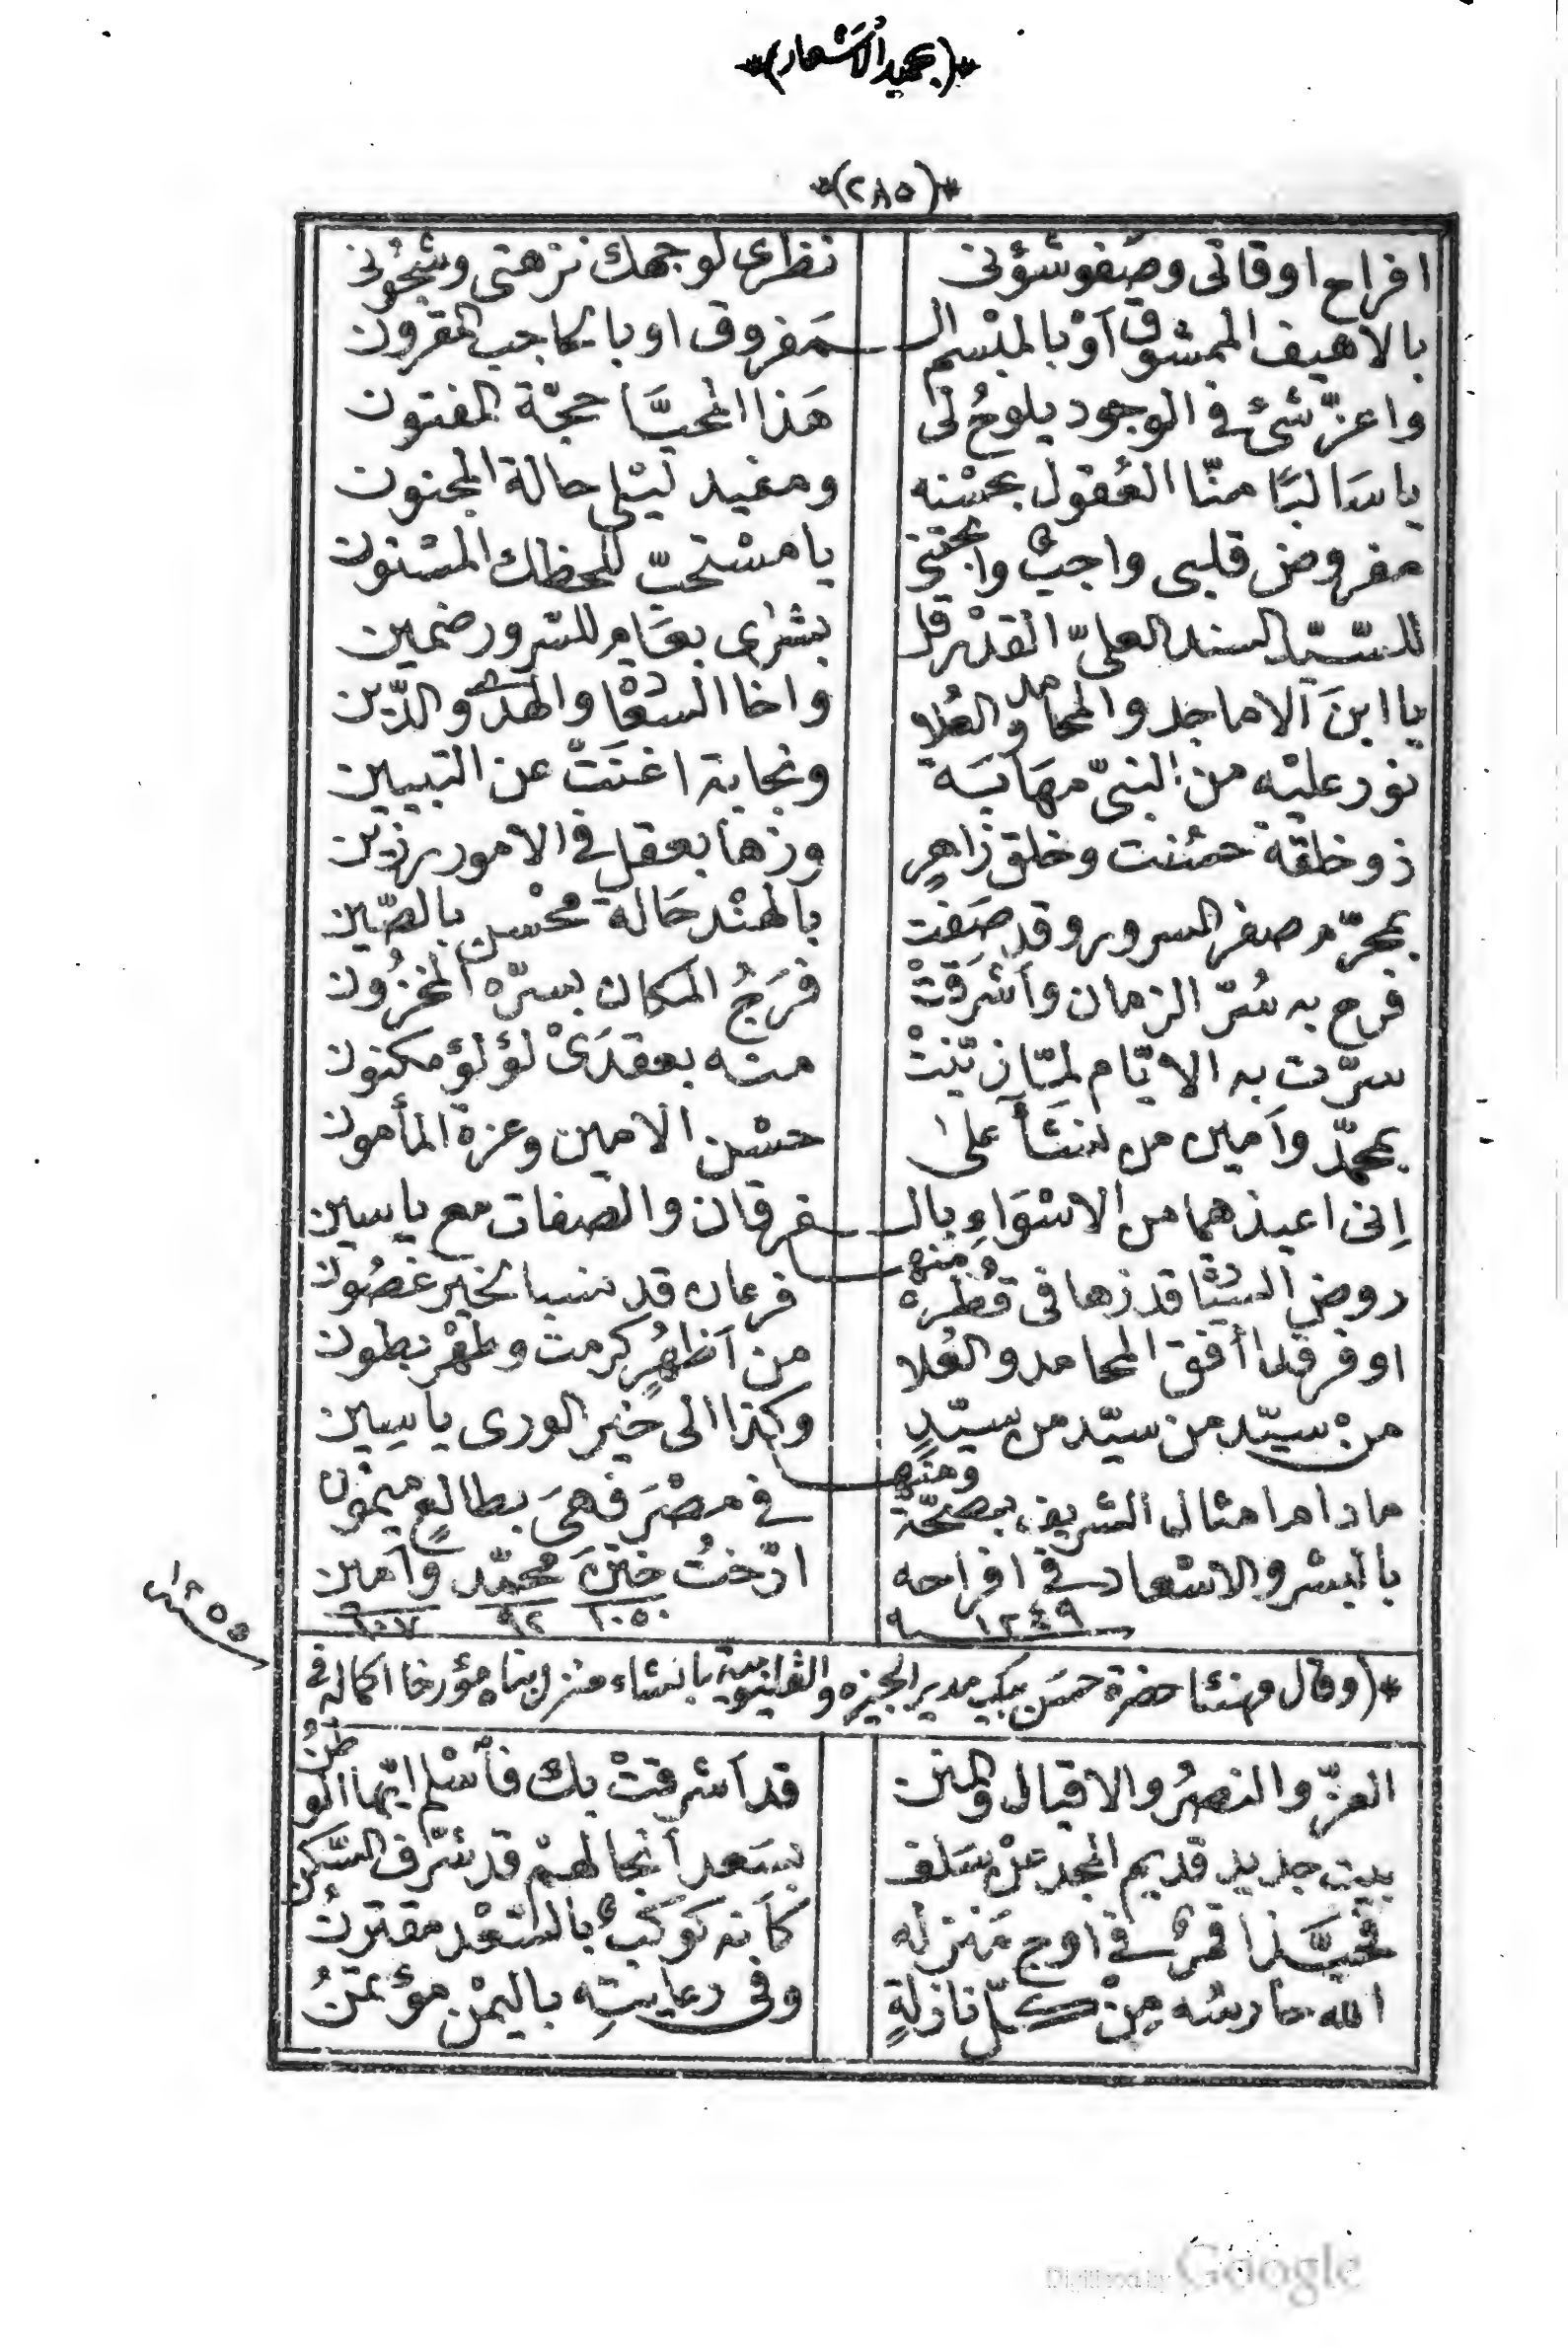 *(بحميد الاشعار)*
*(٢٨٥)*
افراح اوقاتى وصفو شؤنى نظرى لوجهك نزهتى وشجونى
بالاهيف الممشوق أوْ بالمبْسم الـ ـمَفروق او بالحاجب المقرون
واعزّ شئ فى الوجود يلوحُ لى هَذا المحيَّا حجّة المفتون
ياسَالبًا منّا العُقول بحسْنه ومعيد ليْلى حالة المجنون
مفروض قلبى واجبٌ يا مسْتحبّ للحظك المسْنون
للسّيّد السند العلىّ القدْر قل بشرٰى بعَام للسّرور ضمين
يا ابنَ الاماجد والمحامد والعُلا واخا السّعْاد والهدٰى والدّين
نور عليْه من النبىّ مهَابَة ونجابة اغنَتْ عن التبيين
ذو خلقة حسُنت وخلق زاهرٍ وزها بعقل فى الامور رزين
بمحرّم صفر السرور وقد صَفَت بالهنْد حَالة محْسن بالصّين
فرح به سُرّ الزمان وأشرَقتْ فرَجُ المكان بسرّه المخزُون
سرّت به الايّام لمّا زيّنتْ منه بعقدَىْ لؤلؤ مكنون
بمحمّد وأمين من نشَأ علىٰ حسْن الامين وعزة المأمون
إنى اعيذهما من الاسْوَاءِ بالـ ـفرقان والصفات مع ياسين
ومنه
روض قد زها فى قطْره فرعان قد نسبا لخير غصُون
او فرقدا أفق المحامد والعُلا من أظهُرٍ كرمت وطهْر بطون
منْ سيّد من سيّد من سيّدٍ وكذا الى خيْر الورى ياسِين
ومنه
مادام امثال الشريف بصحّة فى مصْرَ فهىَ بطالعٍ ميمون
بالبشر والاسْعاد فى افراحه ارّختُ ختنَ محمّد وأمين
سنة ١٢٤٩ ١٠٥٠ ٩٢ ١٠٧
سنة ١٢٥٥
*(وقال مهنئا حضرة حسَن بيك مدير الجيزه والقليوبية بانشاء منزل بناه مؤرخا اكماله فى
العزّ والنصرُ والاقبال والمنن قد أشرقتْ بك فأسْلم ايّها الوطنُ
بيت جديد قديم المجد عنْ سَلف بسَعد أنجالهمْ قد شرّف السّكن
فحبَّذا قمرٌ فى اوج مَنزله كأنه كوكبٌ بالسّعْد مقترنُ
الله حارسُه مِنْ كلّ نازلةٍ وفى رعايتِه باليمْن مؤتمنُ
Digitized by Google